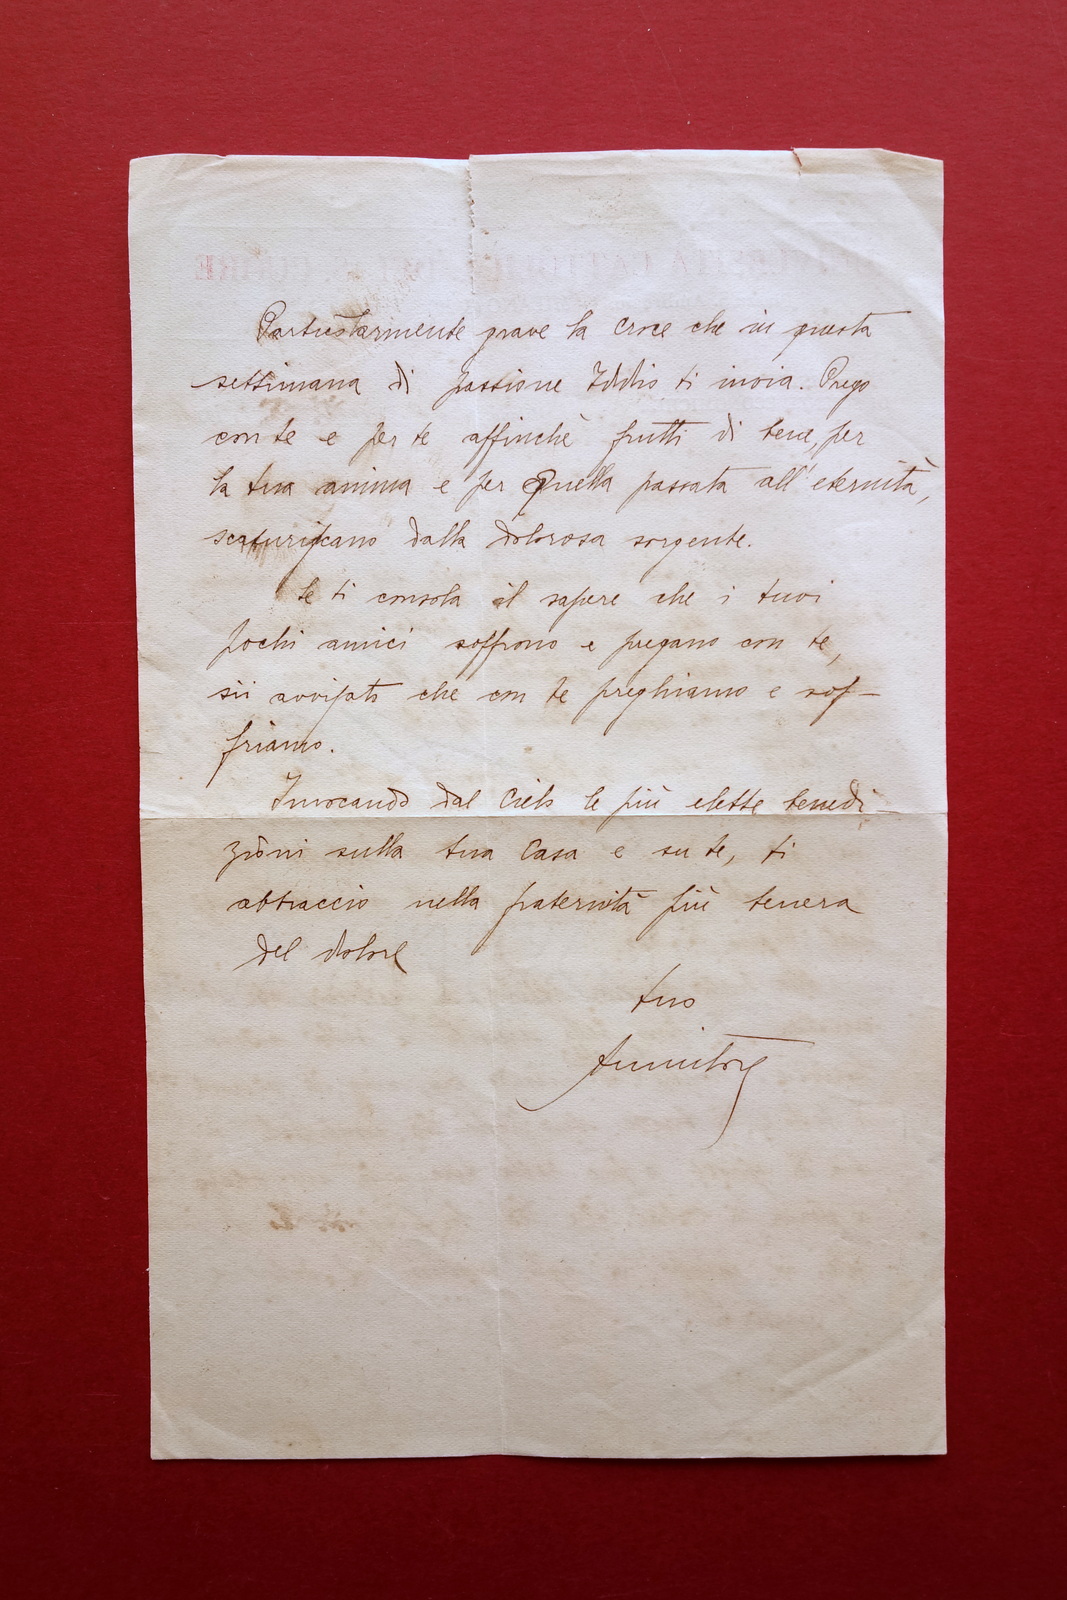 Particolarmente grave la croce che in questa
settimana di passione Iddio ti invia. Prego
con te e per te affinchè frutti di bene, per
la tua anima e per quella passata all'eternità,
scaturiscano dalla dolorosa sorgente.
Se ti consola il sapere che i tuoi
pochi amici soffrono e pregano con te,
sii avvisato che con te preghiamo e sof-
friamo.
Invocando dal Cielo le più elette benedi
zioni sulla tua Casa e su te, ti
abbraccio nella fraternità più tenera
del dolore
tuo